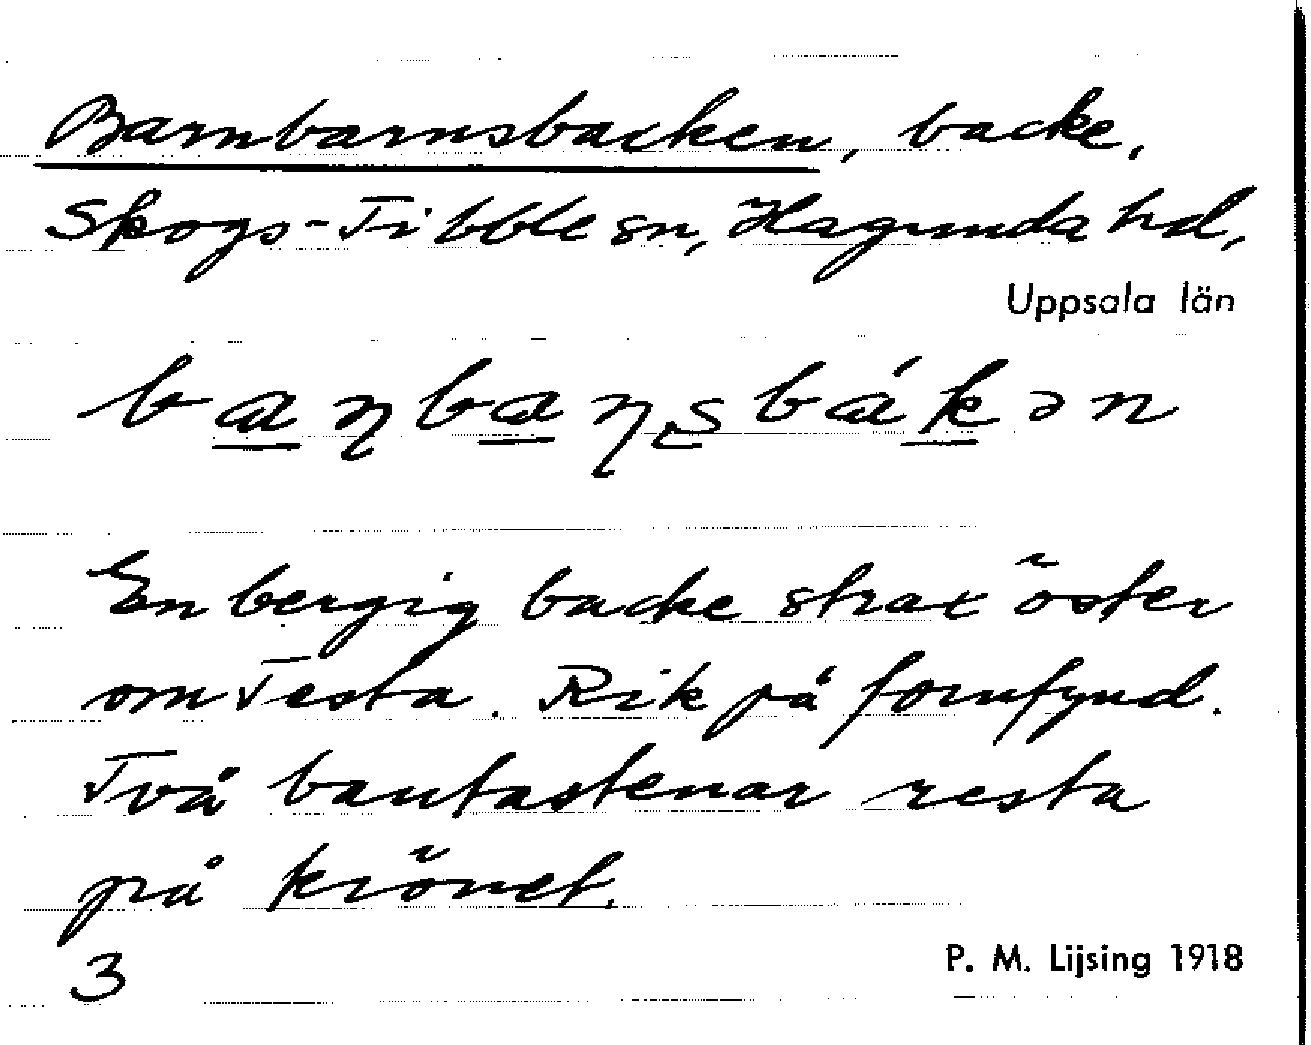 Barnbarnsbacken, backe,
Skogs-Tibble sn, Hagunda hd,
Uppsala län
ba̲ɳba̲ɳʂbák̲ən
En bergig backe strax öster
om Testa. Rik på fornfynd.
Två bautastenar resta
på krönet.
3
P. M. Lijsing 1918